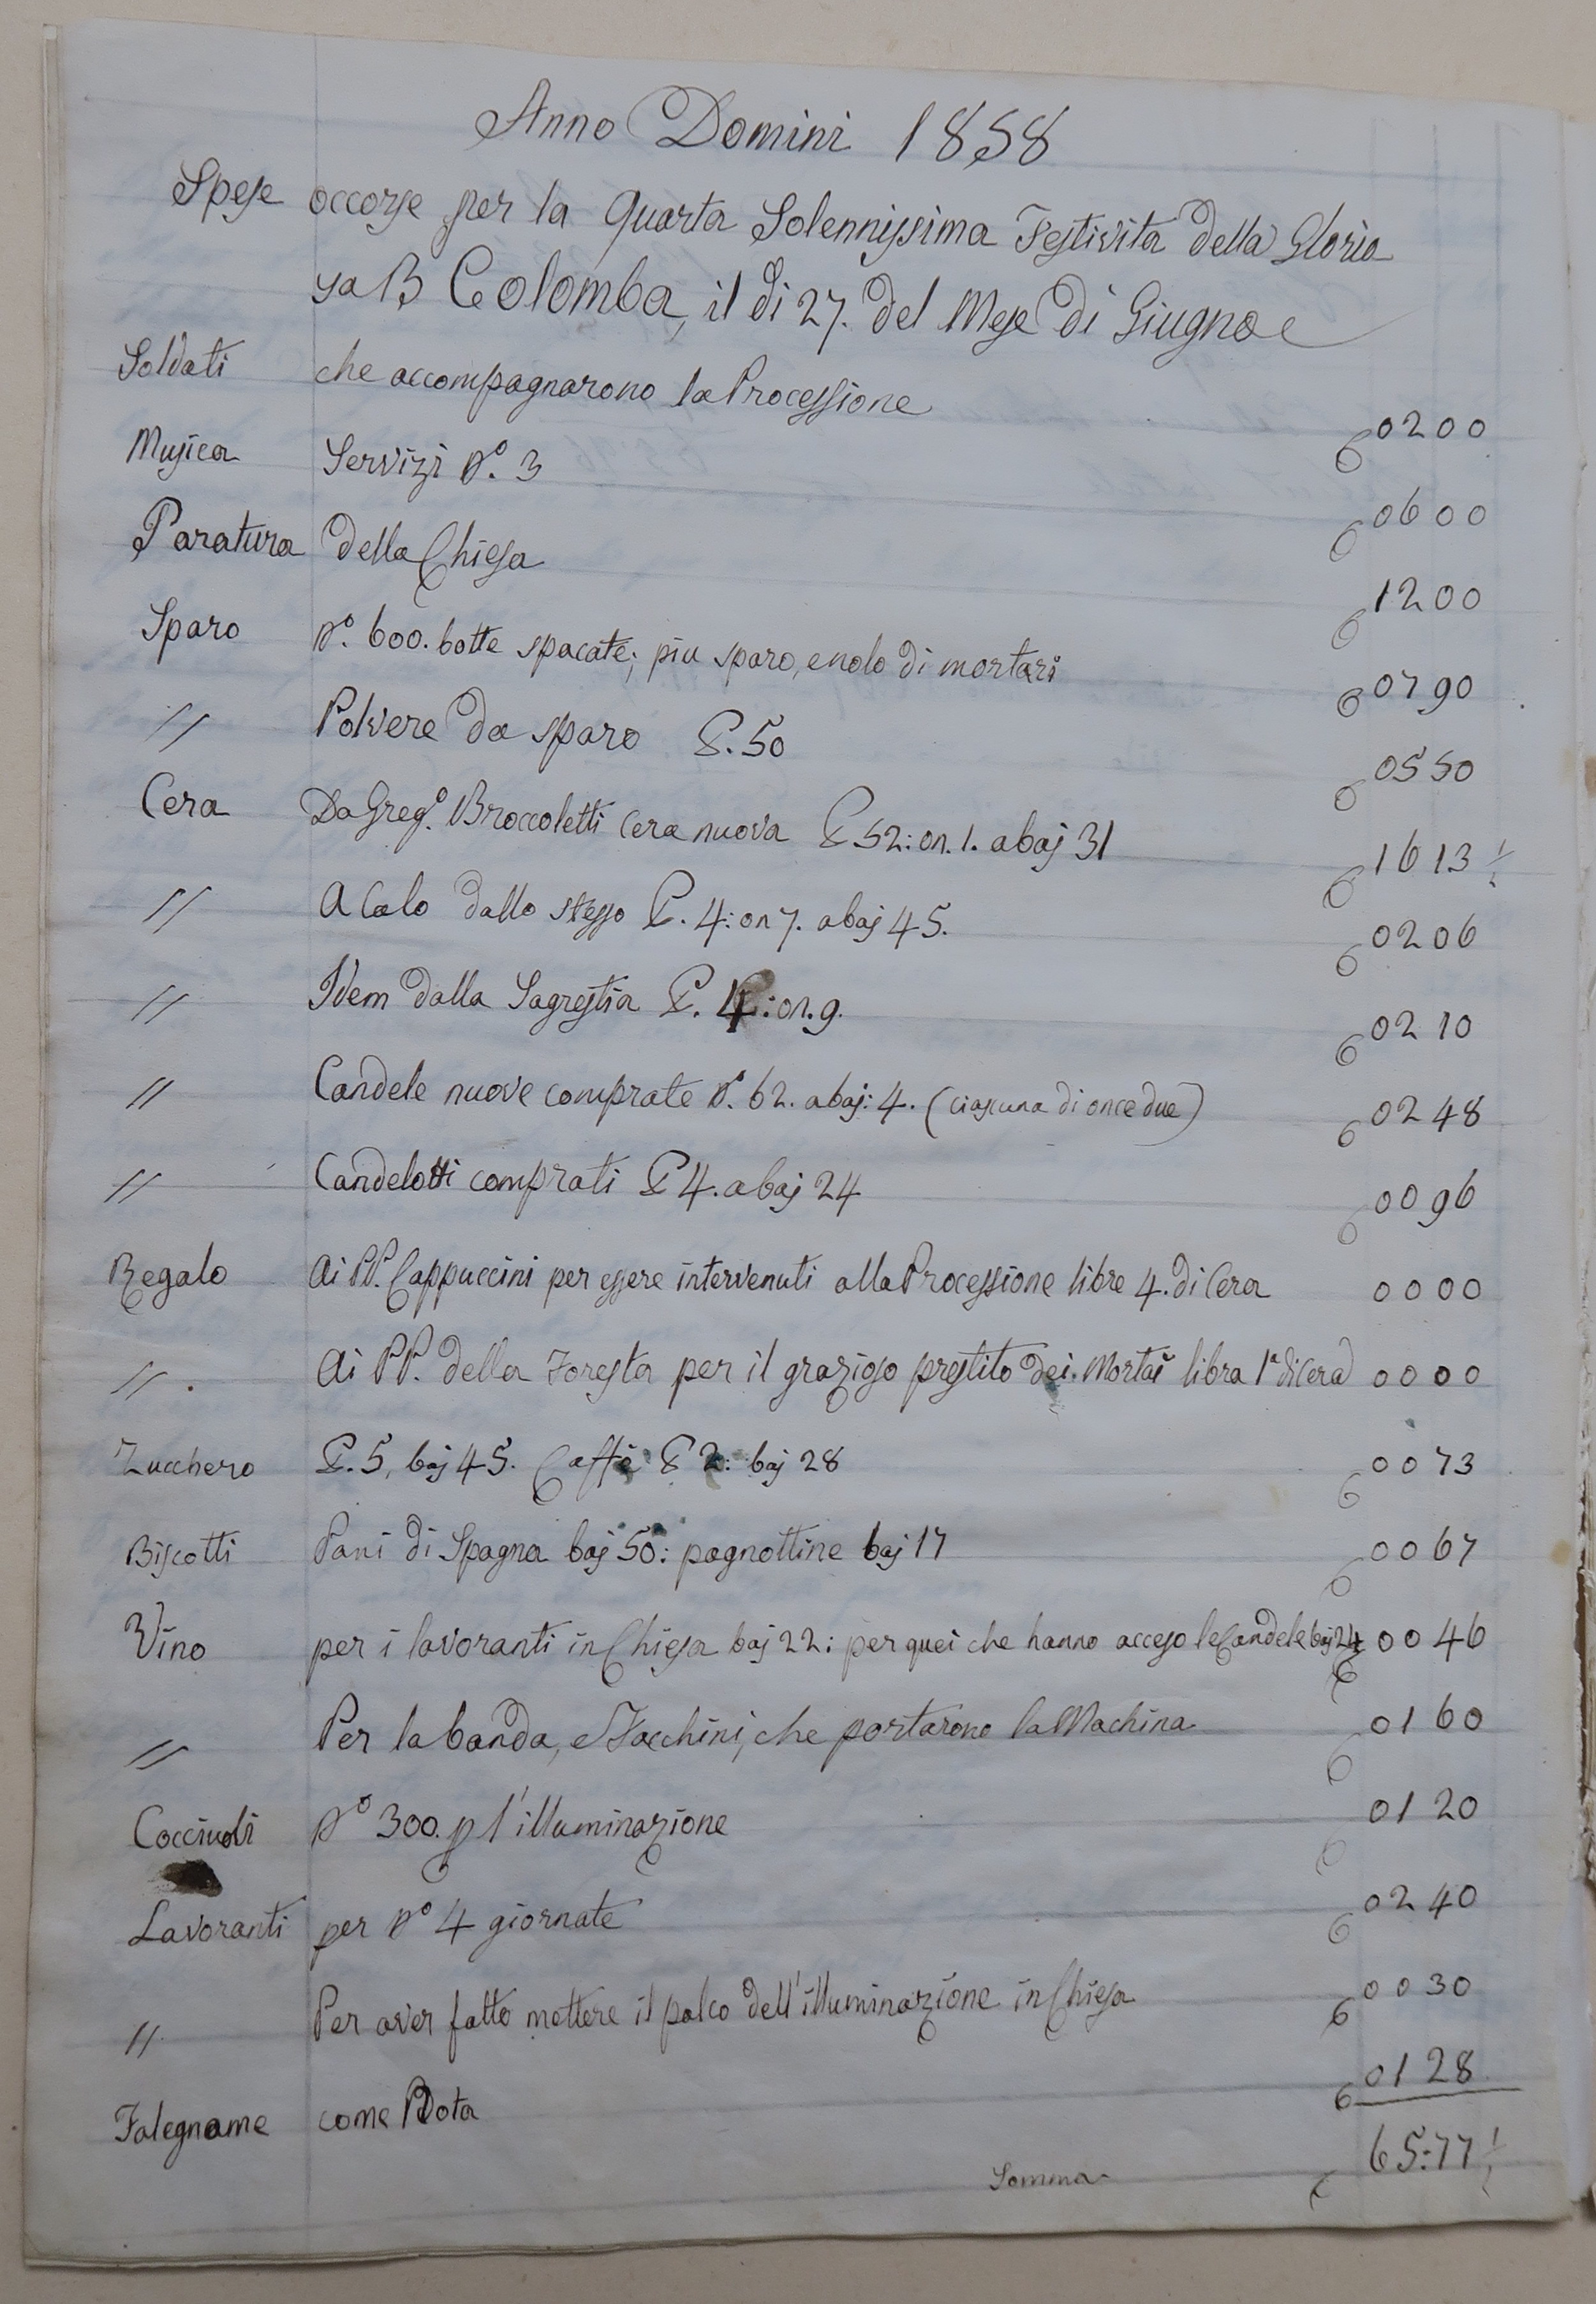 Anno Domini 1858
Spese occorse per la Quarta Solennissima Festività della Glorio
sa B Colomba, il di 27. del Mese di Giugno
Soldati che accompagnarono la Processione 0200
Musica Servizi N.º 3 0600
Paratura della Chiesa 1200
Sparo N.º 600. botte spacate; piu sparo, e nolo di mortari 0790
" Polvere da sparo ℔. 50 0550
Cera Da Greg.º Broccoletti Cera nuova ℔ 52: on. 1. a baj 31 1613 ½
" A Calo dallo stesso ℔. 4: on 7. a baj 45. 0206
" Idem dalla Sagrestia ℔. 4: on. 9. 0210
" Candele nuove comprate N.º 62. a baj: 4. (ciascuna di once due) 0248
" Candelotti comprati ℔ 4. a baj 24 0096
Regalo Ai PP. Cappuccini per essere intervenuti alla Processione libre 4. di Cera 0000
" Ai PP. della Foresta per il grazioso prestito dei Mortai libra 1ª di Cera 0000
Zucchero ℔. 5, baj 45. Caffè ℔ 2: baj 28 0073
Biscotti Pani di Spagna baj 50: pagnottine baj 17 0067
Vino per i lavoranti in Chiesa baj 22: per quei che hanno acceso le Candele baj 24 0046
" Per la banda, e Facchini, che portarono la Machina 0160
Cocciuoli N.º 300. p l'illuminazione 0120
Lavoranti per N.º 4 giornate 0240
" Per aver fatto mettere il palco dell'illuminazione in Chiesa 0030
Falegname come Nota 0128
Somma 65:77 ½